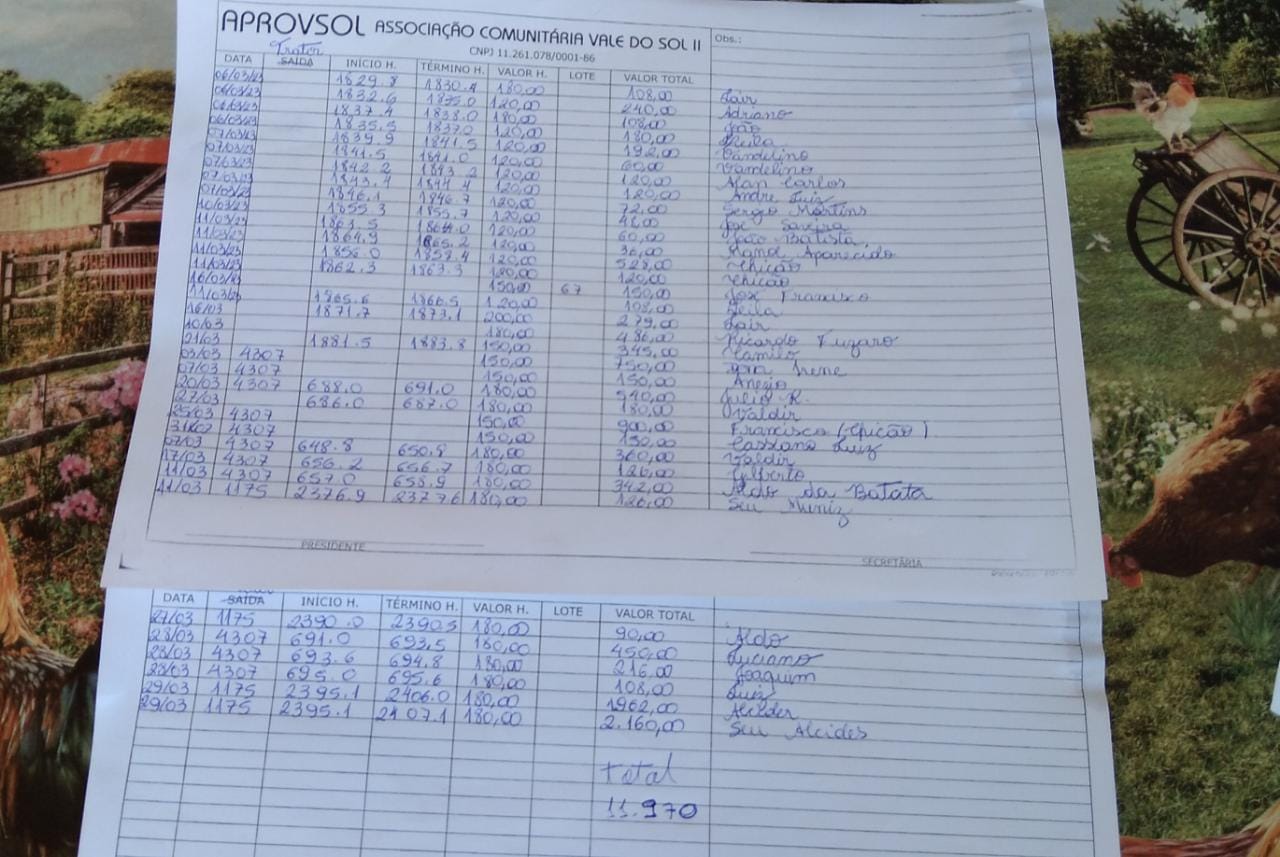 APROVSOL ASSOCIAÇÃO COMUNITÁRIA VALE DO SOL II Obs.:
CNPJ 11.261.078/0001-86
Trator
DATA SAÍDA INÍCIO H. TÉRMINO H. VALOR H. LOTE VALOR TOTAL
06/03/23 1829.8 1830.4 180,00 108,00 Jair
06/03/23 1832.6 1835.0 120,00 240,00 Adriano
06/03/23 1837.4 1838.0 180,00 108,00 João
06/03/23 1835.5 1837.0 120,00 180,00
07/03/23 1839.9 1841.5 120,00 192,00 Vandelino
07/03/23 1841.5 1841.0 120,00 60,00 Vandelino
07/03/23 1842.2 1843.2 120,00 120,00 Alan Carlos
07/03/23 1843.4 1844.4 120,00 120,00 Andre Luiz
07/03/23 1846.1 1846.7 120,00 72,00 Sergio Martins
10/03/23 1855.3 1855.7 120,00 48,00 José
11/03/23 1863.5 1864.0 120,00 60,00 João Batista
11/03/23 1864.9 1865.2 120,00 36,00 Aparecido
11/03/23 1856.0 1857.4 120,00 528,00 chicão
11/03/23 1862.3 1863.3 120,00 120,00 chicão
16/03/23 150,00 67 150,00 José Francisco
11/03/23 1865.6 1866.5 120,00 108,00 Leila
16/03 1871.7 1873.1 200,00 279,00 Jair
10/03 180,00 486,00 Ricardo Fuzaro
21/03 1881.5 1883.8 150,00 345,00 Camilo
03/03 4307 150,00 750,00 Irene
07/03 4307 150,00 150,00 Anezio
20/03 4307 688.0 691.0 180,00 540,00 Julio R.
27/03 686.0 687.0 180,00 180,00 Valdir
25/03 4307 150,00 900,00 Francisco (Chicão)
31/02 4307 150,00 150,00 Cassiano Luiz
07/03 4307 648.8 650.8 180,00 360,00 Valdir
17/03 4307 656.2 656.7 180,00 126,00 Gilberto
11/03 4307 657.0 658.9 180,00 342,00 Aldo da Batata
11/03 1175 2376.9 2377.6 180,00 126,00 Seu Muniz
PRESIDENTE SECRETÁRIA
DATA SAÍDA INÍCIO H. TÉRMINO H. VALOR H. LOTE VALOR TOTAL
27/03 1175 2390.0 23905 180,00 90,00 Aldo
28/03 4307 691.0 693,5 180,00 450,00 Luciano
28/03 4307 693.6 694.8 180,00 216,00 Joaquim
28/03 4307 695.0 695.6 180,00 108,00 Luiz
29/03 1175 2395.1 2406.0 180,00 1962,00
29/03 1175 2395.1 2107.1 180,00 2.160,00 Seu Alcides
Total
11.970